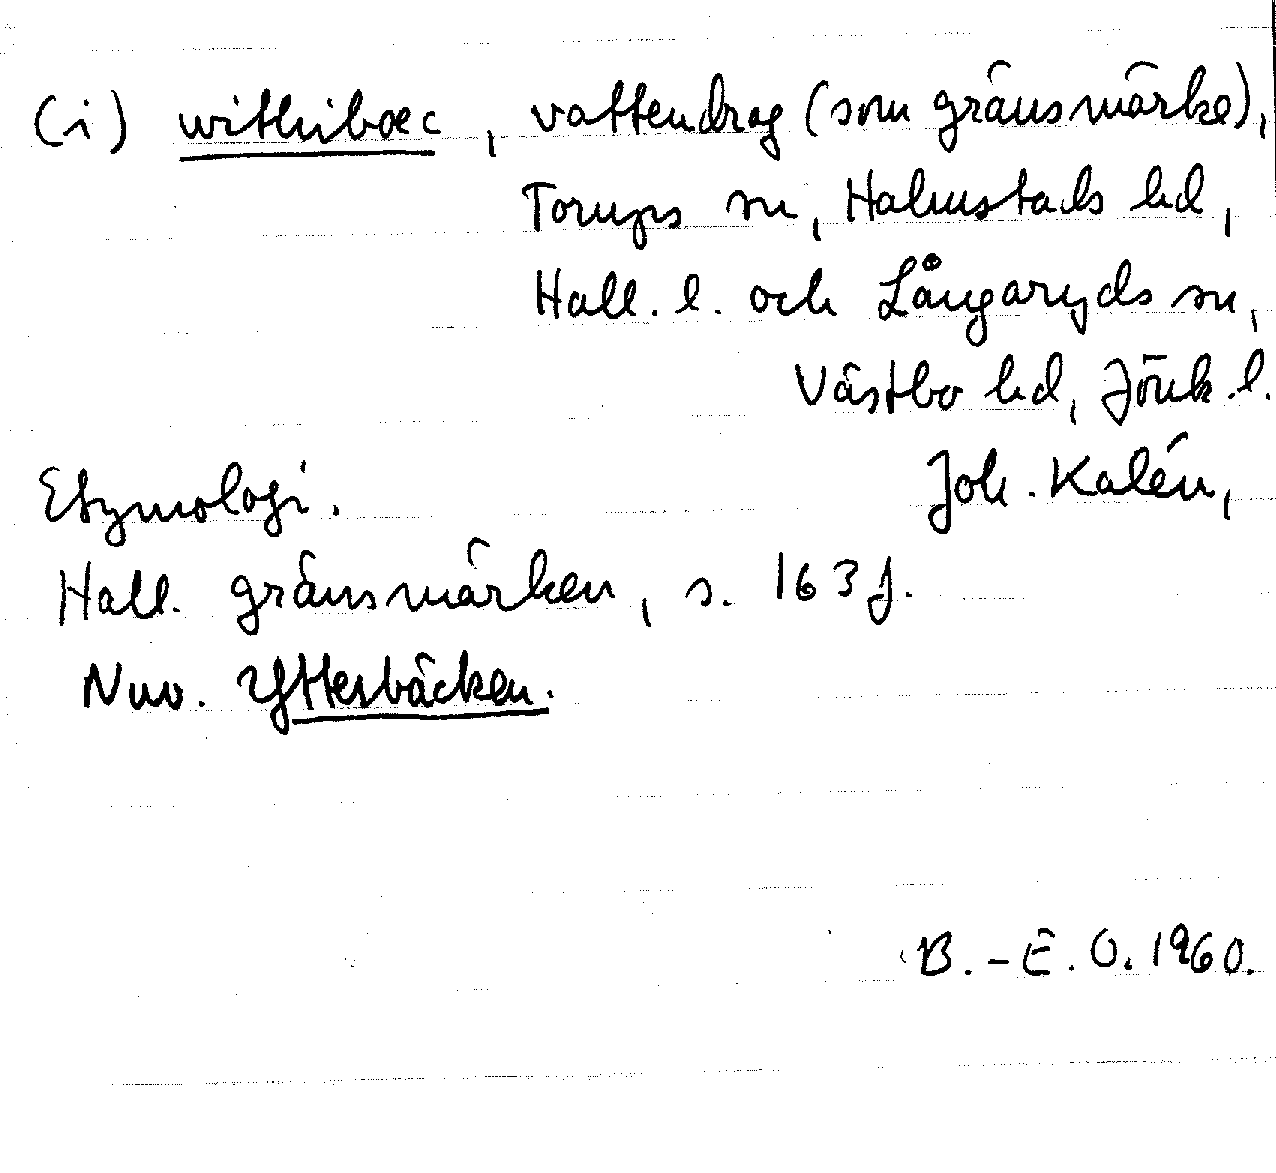 (i) withibæc, vattendrag (som gränsmärke),
Torups sn, Halmstads hd,
Hall. l. och Långaryds sn,
Västbo hd, Jönk. l.
Etymologi. Joh. Kalén,
Hall. gränsmärken, s. 163 f.
Nuv. Ytterbäcken.
B.-E. O. 1960.